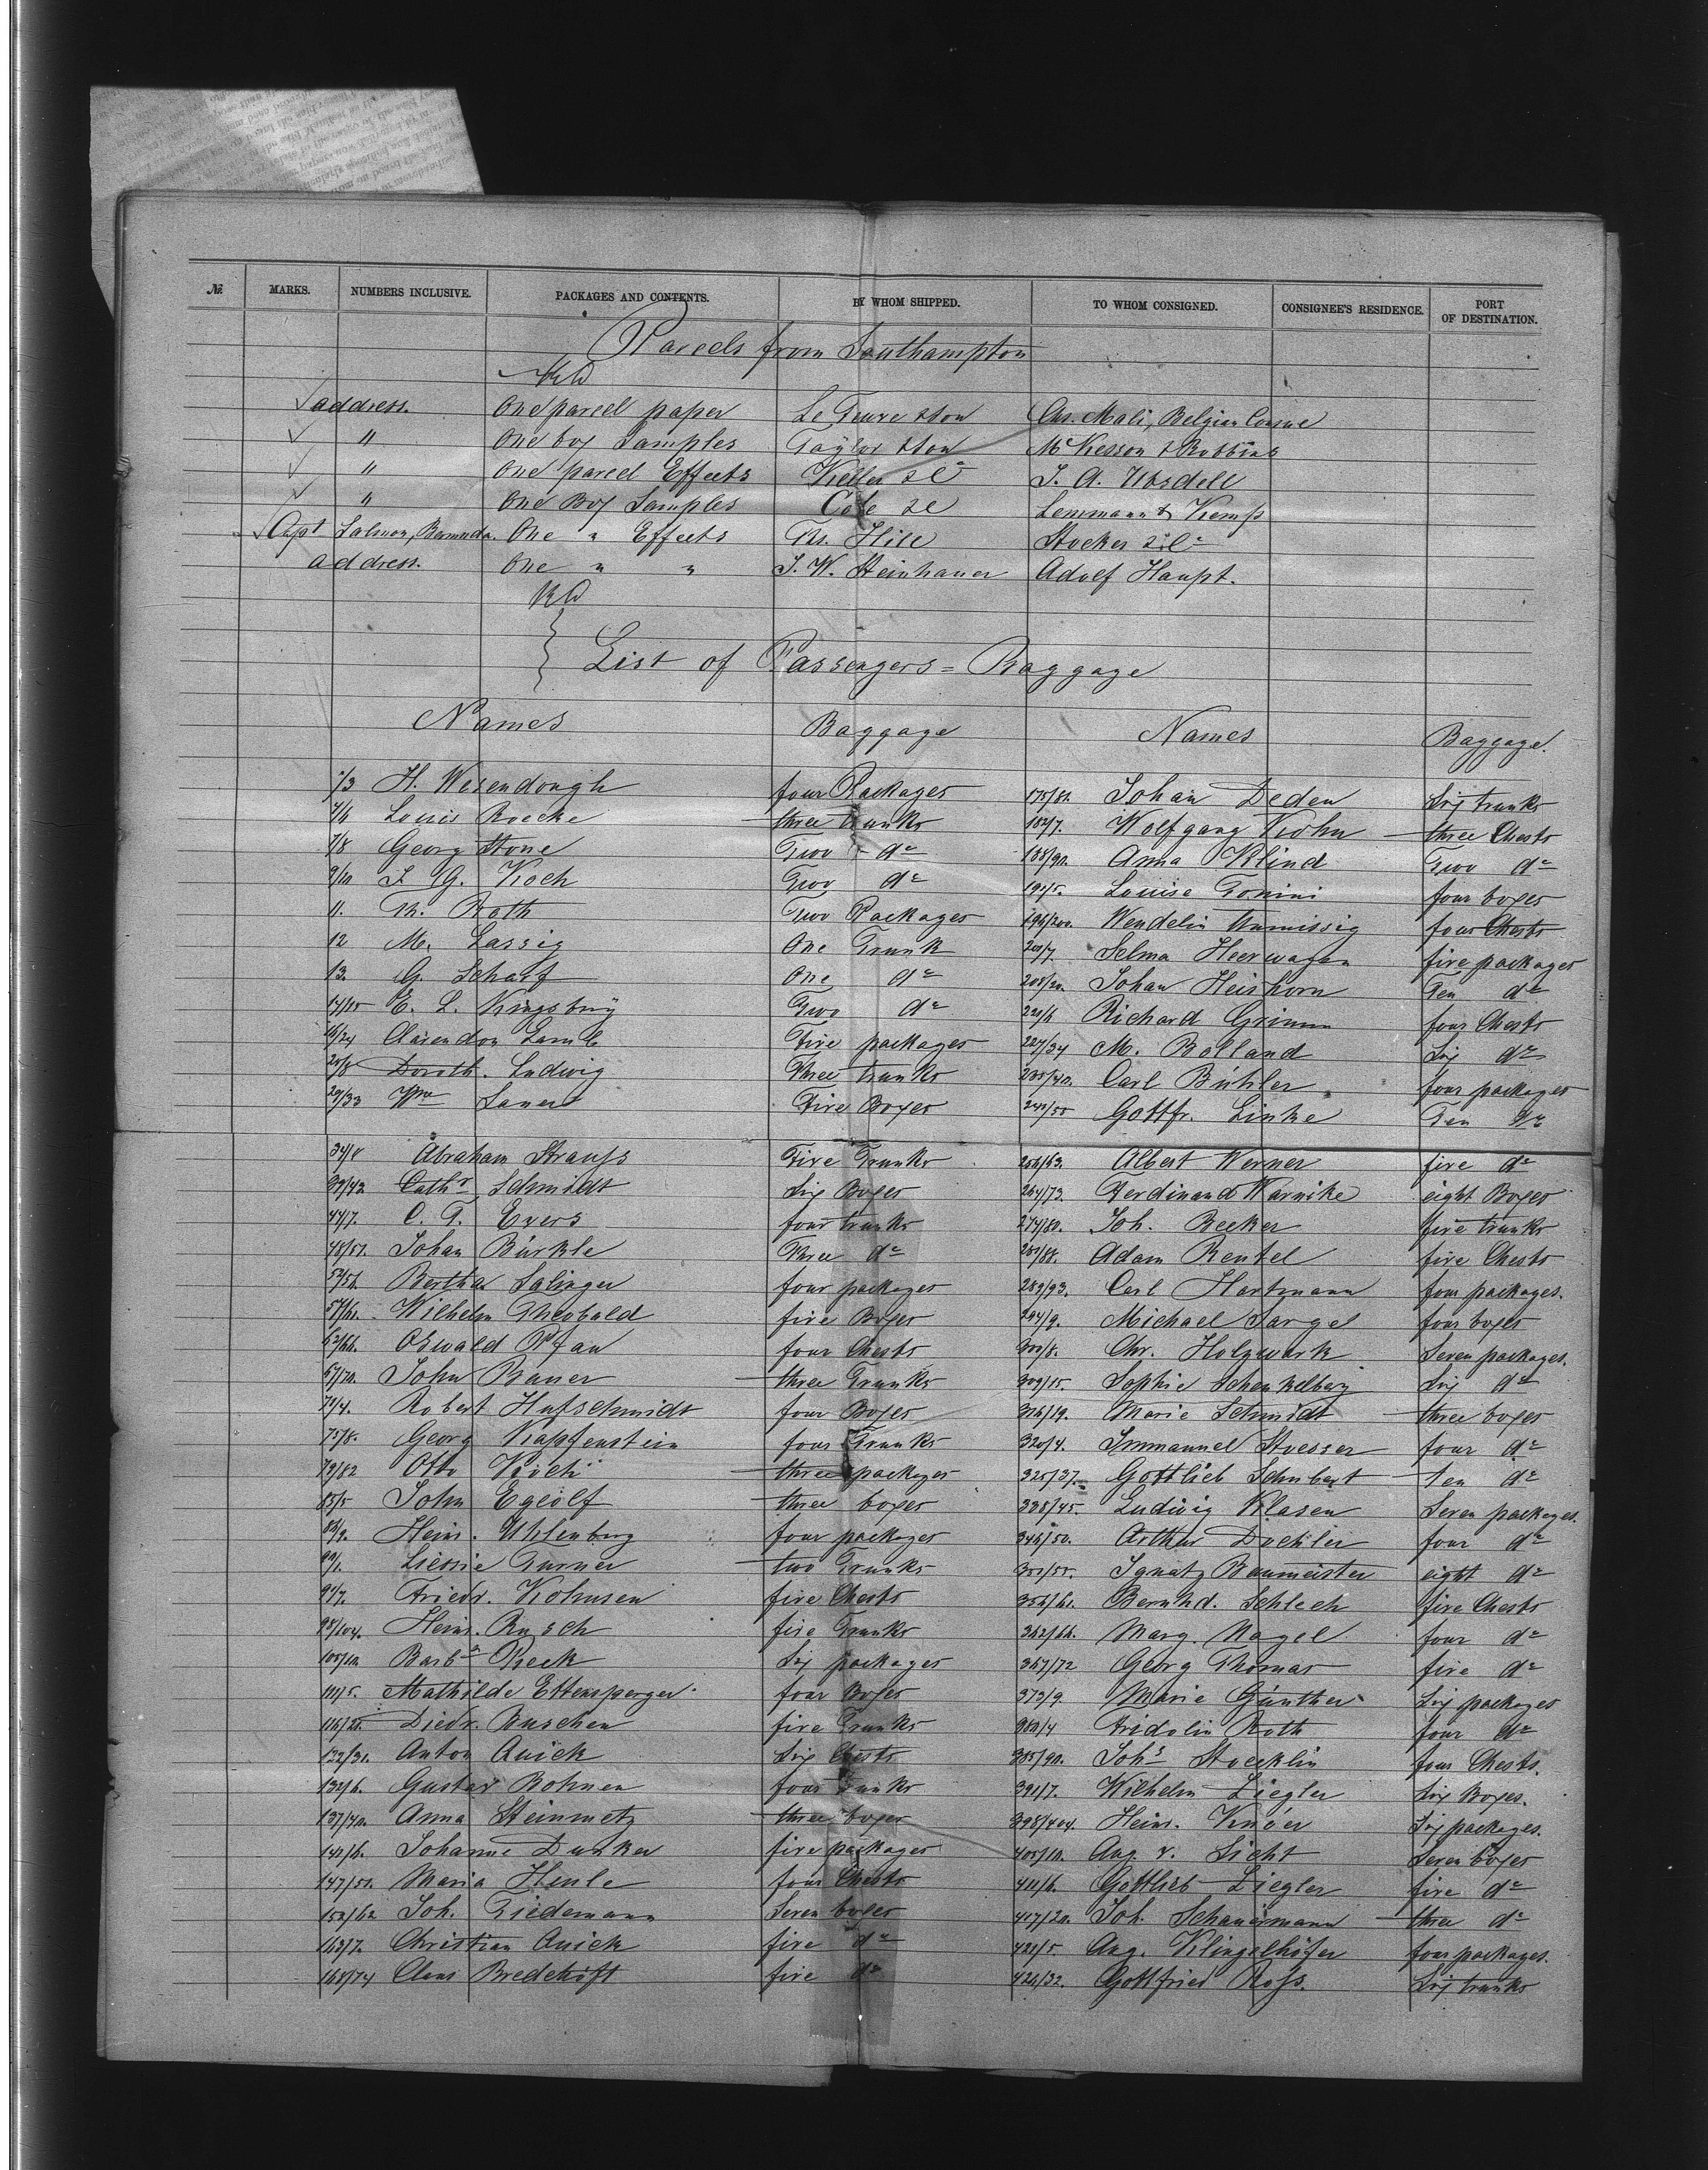 № MARKS. NUMBERS INCLUSIVE. PACKAGES AND CONTENTS. BY WHOM SHIPPED. TO WHOM CONSIGNED. CONSIGNEE'S RESIDENCE. PORT OF DESTINATION.
Parcels from Southampton
address. One parcel paper Le Feuvre & Son Chs. Mali, Belgian Consul
" One box Samples Taylor & Son McKesson & Robbins
" One parcel Effects Keller & C° J. A. Ubsdell
" One Box Samples Cole Lemmann & Kemp
Capt Salmon, Bermuda. One " Effects Ths. Hill Stocker & C°
address. One " " J. W. Steinhauer Adolf Haupt.
List of Passengers = Baggage
Names Baggage Names Baggage.
1/3 H. Wesendongh four Packages 175/81. Johan Deden Six trunks
4/6 Louis Roecke three trunks 182/7. Wolfgang Krohn three Chests
7/8 Georg Stone Two do 188/90. Anna Klind Two do
9/10 J. G. Koch Two do 191/5. Louise Tonini four boxes
11. Th. Roth Two Packages 196/200. Wendelin four Chests
12 M. Lassig One Trunk 201/7. Selma Heerwagen five packages
13. G. Scharf One do 208/20. Johan Heishorn Ten do
14/15 E. L. Kingsbury Two do 221/6 Richard Grimm four Chests
16/24 Clarendon Lamb Five packages 227/34 M. Bolland Six do
25/8 Doroth. Ludwig Three trunks 235/40. Carl Bühler four packages
29/33 Wm Lauer Five Boxes 241/55 Gottfr. Linke Ten do
34/8 Abraham Strauss Five Trunks 256/63. Albert Werner five do
39/43 Cathr. Schmidt Six Boxes 264/73. Ferdinand Warnike eight Boxes
44/7. C. T. Evers four trunks 274/80. Joh. Becker five trunks
48/51. Johan Bürkle Three do 281/88. Adam Rentel five Chests
52/56 Bertha Salinger four packages 289/93. Carl Hartmann four packages.
57/61. Wilhelm Theobald five Boxes 294/9. Michael Sargel four boxes
62/66. Oswald Pfau four Chests 300/8. Chr. Holzwark Seven packages.
67/70. John Bauer three Trunks 309/15. Sophie Schenkelberg Six do
71/4. Robert Hufschmidt four Boxes 316/19. Marie Schmidt three boxes
75/8. Georg Kapfenstein four Trunks 320/4. Immanuel Stoesser four do
79/82 Otto Koch three packages 325/37. Gottlieb Schubert ten do
83/5 John Egeolf three boxes 338/45. Ludwig Klasen Seven packages.
86/9. Heinr. Uhlenberg four packages 346/50. Arthur Doehler four do
90/1. Liessie Turner two Trunks 351/55. Ignatz Baumeister eight do
92/7. Friedr. Kohnsen five Chests 356/61. Bernhd. Schlech five Chests
98/104. Heinr. Rusch five Trunks 362/66. Marg. Nagel four do
105/10. Barba Reck Six packages 367/72 Georg Thomas five do
111/5. Mathilde Ettensperger four Boxes 373/9. Marie Günther Six packages
116/21. Diedr. Buschen five Trunks 380/4 Fridolin Roth four do
122/31. Anton Quick Six Chests 385/90. Johs Stoecklin four Chests.
132/6. Gustav Bohnen four Trunks 391/7. Wilhelm Ziegler Six Boxes.
137/40. Anna Steinmetz three boxes 398/404. Heinr. Knöer Six packages.
141/6. Johanne Dunker five packages 405/10. Aug. v. Licht Seven boxes
147/51. Maria Henle four Chests 411/6. Gottlieb Ziegler five do
152/62 Joh. Tiedemann Seven boxes 417/20. Joh. Schauermann three do
163/7. Christian Quick five do 421/5. Aug. Klingelhöfer four packages.
168/74 Claus Bredehöft five do 426/32. Gottfried Ross. Six trunks